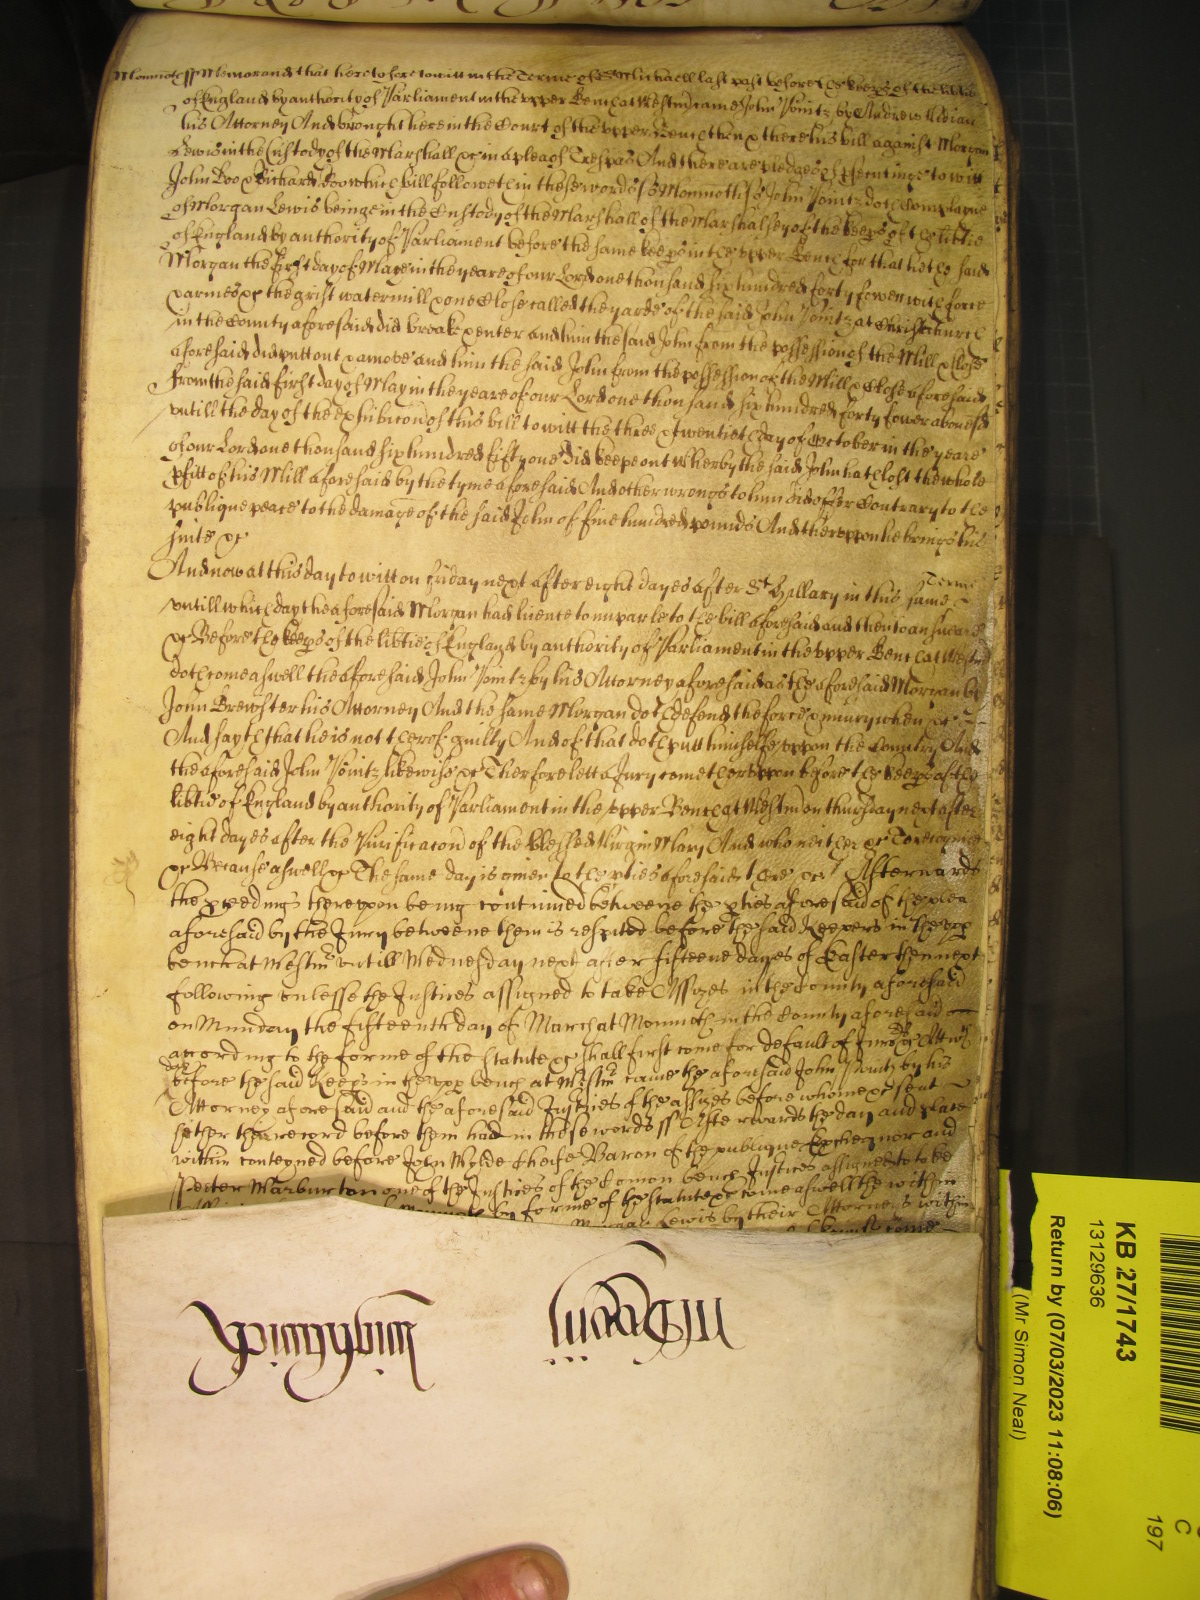 Monmoth ss Memorand that heretofore to witt in the Terme of St Michaell last past before the keeps of the libtie
of England by authority of Parliament in the upper Bench at Westm came John Pointz by Andrew
his Attorney And brought here in the Court of the upper Bench then & there his bill against Morgan
Lewis in the Custody of the Marshall &c in a plea of Trespas And there are pledges of psecuting to witt
John Doo & Richard Roo which bill followeth in these words ss Monmoth ss John Pointz doth Complayne
of Morgan Lewis beinge in the Custody of the Marshall of the Marshalsey of the keeps of the libtie
of England by authority of Parliament before the same keeps in the upper Bench for that hee the said
Morgan the first day of Maye in the yeare of our Lord one thousand six hundred forty fower with force
& armes &c the grist watermill & one Close called the yarde of the said John Pointz at Christchurch
in the County aforesaid did breake & enter and him the said John from the possession of the Mill & Close
aforesaid did putt out & amove and him the said John from the possession of the Mill & Close aforesaid
from the said first day of May in the yeare of our Lord one thousand six hundred forty fower abovesd
untill the day of the exhibicon of this bill to witt the three & twentieth day of October in the yeare
of our Lord one thousand six hundred fifty one did keepe out Wherby the said John hath lost the whole
pfitt of his Mill aforesaid by the tyme aforesaid And other wrongs to him did offer Contrary to the
publique peace to the damage of the said John of five hundred pounds And theruppon he brings his
suite &c
And now at this day to witt on Friday next after eight dayes after St Hillary in this same Terme
untill which day the aforesaid Morgan had licence to imparle to the bill aforesaid and then to answeare
&c Before the keeps of the libtie of England by authority of Parliament in the upper Bench at Westm
doth come aswell the aforesaid John Pointz by his Attorney aforesaid as the aforesaid Morgan by
John Brewster his Attorney And the same Morgan doth defend the force & iniury when &c
And sayth that he is not therof guilty And of that doth putt himselfe uppon the Country And
the aforesaid John Pointz likewise &c Therfore lett a Jury come theruppon before the keeps of the
libtie of England by authority of Parliament in the upper Bench at Westm on thursday next after
eight dayes after the Purificacon of the blessed Virgin Mary And who neither &c To recognize
&c Because aswell &c The same day is given to the pties aforesaid there &c Afterwards
the pceedings thereupon being continued betweene the pties aforesaid of the plea
aforesaid by the Jury betweene them is respited before the said Keepers in the upp
bench at Westm untill Wednesday next after fifteene dayes of Easter then next
following unlesse the Justices assigned to take Assizes in the County aforesaid
on Munday the fifteenth day of March at Monmoth in the County aforesaid
according to the forme of the statute &c shall first come for default of Jurors &c Att wch
day before the said Keeps in the upp bench at Westm came the aforesaid John Pointz by his
Attorney aforesaid and the aforesaid Justices of the assizes before whome &c sent
hither there record before them had in these words ss Afterwards the day and place
within conteyned before John Wylde Cheife Baron of the publique Exchequer and
Peeter Warburton one of the Justices of the Comon bench Justices assigned to take
by forme of the statute &c come aswell the within
Lewis by their Attorneis within
KB 27/1743
13129636
Return by (07/03/2023 11:08:06)
(Mr Simon Neal)
C
197